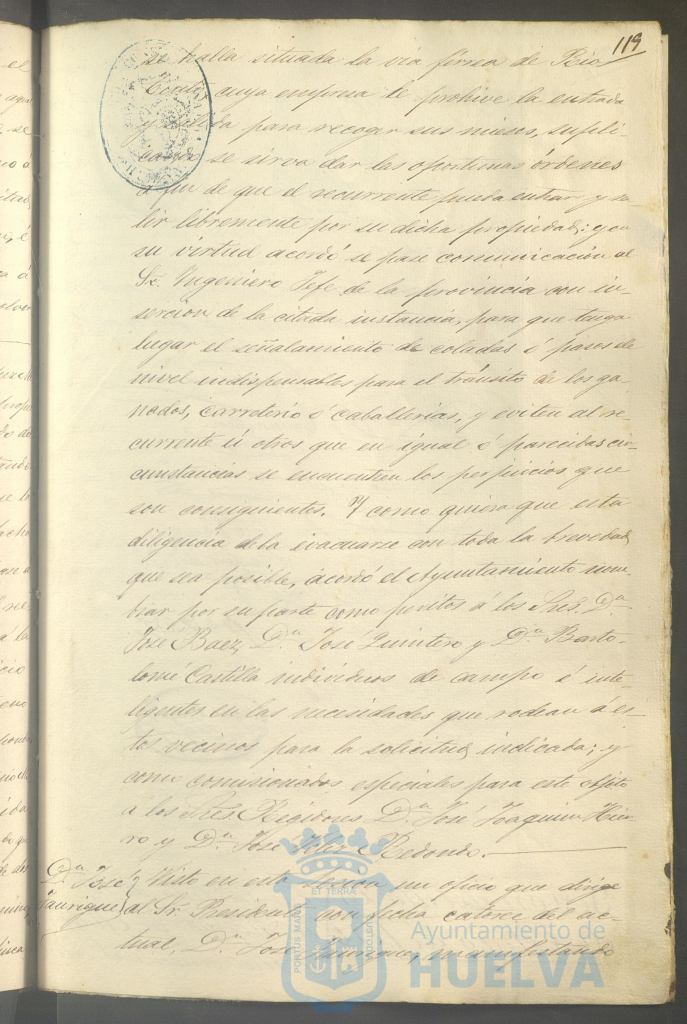 119
se halla situada la via férrea de Rio
Tinto cuya empresa le prohive la entrada
y salida para recoger sus mieses, supli-
cando se sirva dar las oportunas órdenes
a fin de que el recurrente pueda entrar y sa-
lir libremente por su dicha propiedad; y en
su virtud acordó se pase comunicación al
Sr. Ingeniero Jefe de la provincia con in-
serción de la citada instancia, para que tenga
lugar el señalamiento de coladas ó pasos de
nivel indispensables para el tránsito de los ga-
nados, carreterio ó caballerias, y eviten al re-
currente ú otros que en igual ó parecidas cir-
cunstancias se encuentren los perjuicios que
son consiguientes. Y como quiera que esta
diligencia deba evacuarse con toda la brevedad
que sea posible, acordó el Ayuntamiento nom-
brar por su parte como peritos á los Sres. Dn
José Baez, Dn José Quintero y Dn Barto-
lomé Castilla individuos de campo é inte-
ligentes en las necesidades que rodean á es-
tos vecinos para la solicitud indicada; y
como comisionados especiales para este objeto
a los Sres Regidores Dn José Joaquin Hier-
ro y Dn José Redondo.
Dn José Visto en esta sesion un oficio que dirige
al Sr. Presidente con fecha catorce del ac-
tual, Dn José manifestando
PORTUS MARIS
ET TERRÆ
CUSTODIA
Ayuntamiento de
HUELVA